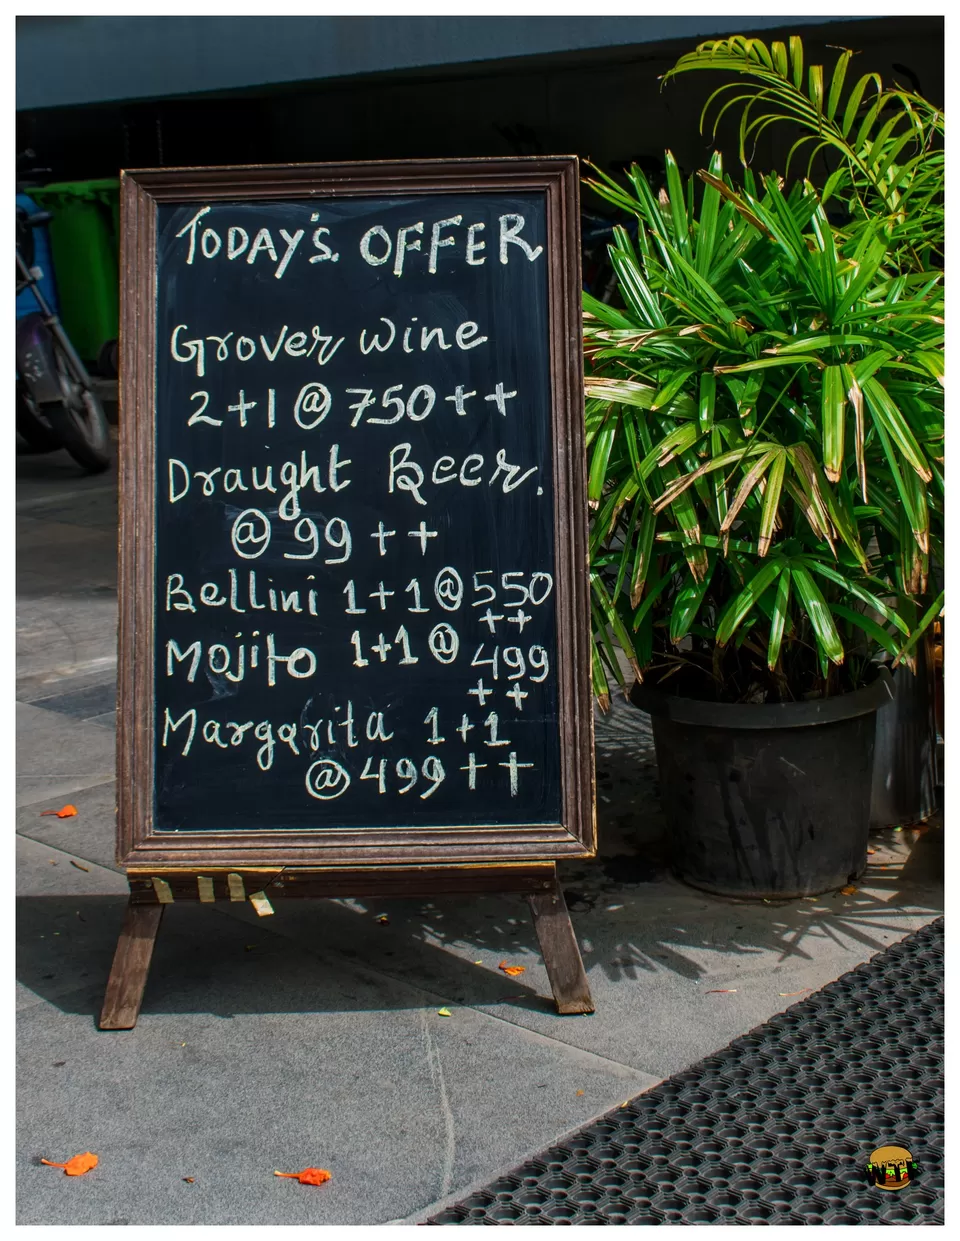 TODAY'S OFFER
Grover wine
2+1 @ 750++
Draught Beer.
@ 99 ++
Bellini 1+1 @ 550
++
Mojito 1+1 @ 499
++
Margarita 1+1
@ 499 ++